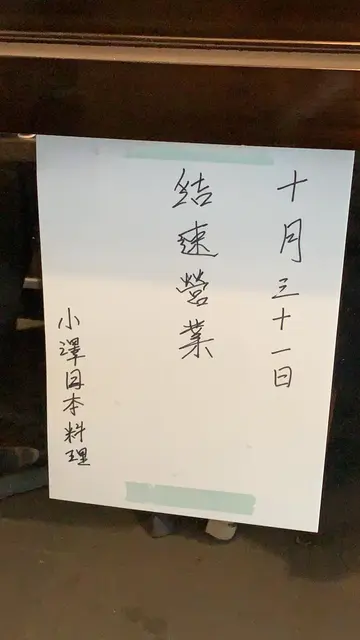 十月三十一日
結速營業
小澤日本料理